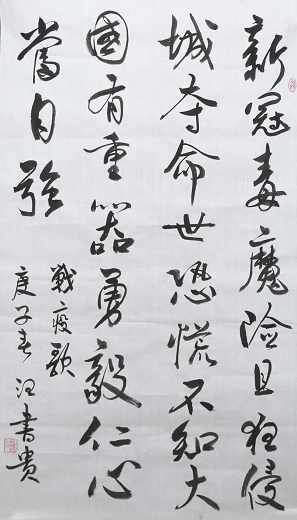 新冠毒魔险且狂侵
城夺命世恐慌不知大
國有重器勇毅仁心
當自强
戰疫歌
庚子春 書贵